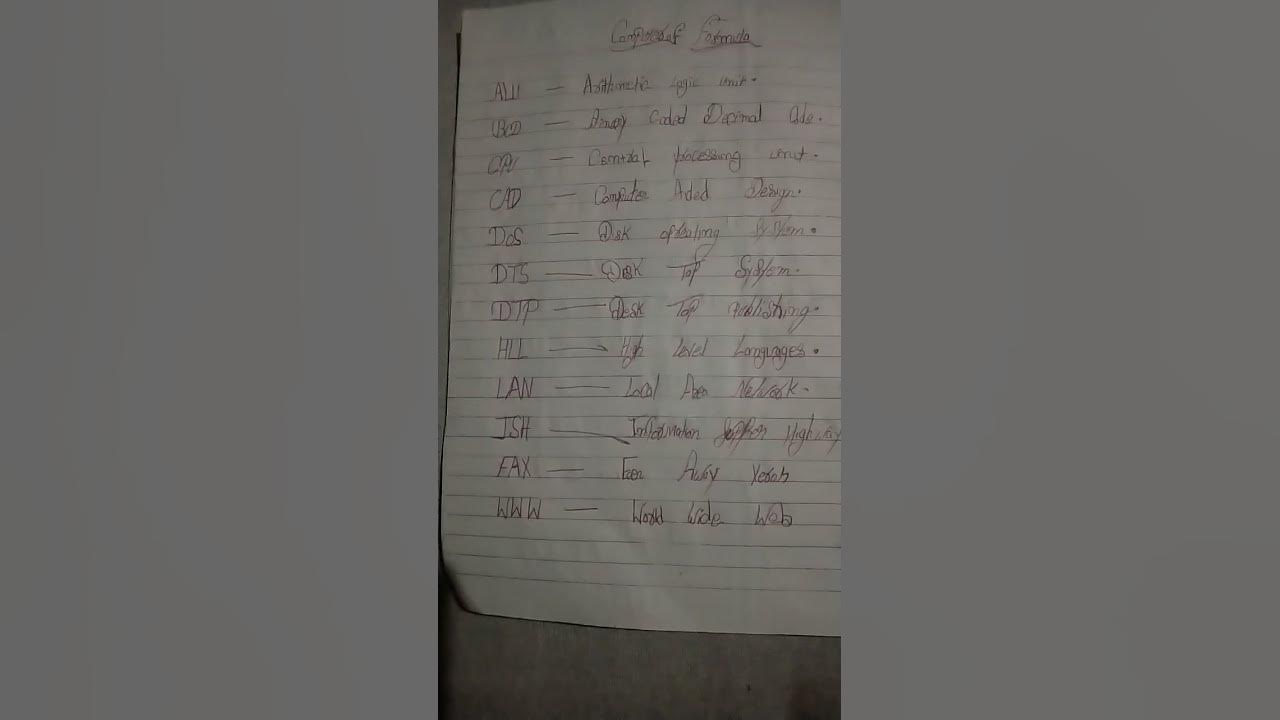 Computer Formula
ALU — Arithmetic Logic unit.
BCD — Binary Coded Decimal Code.
CPU — Central processing unit.
CAD — Computer Aded Design.
DOS — Disk opreating system.
DTS — Desk Top System.
DTP — Desk Top publishing.
HLL — High Level Languages.
LAN — Local Area Network.
ISH — Information Highway
FAX — Away Xerox
WWW — World Wide Web